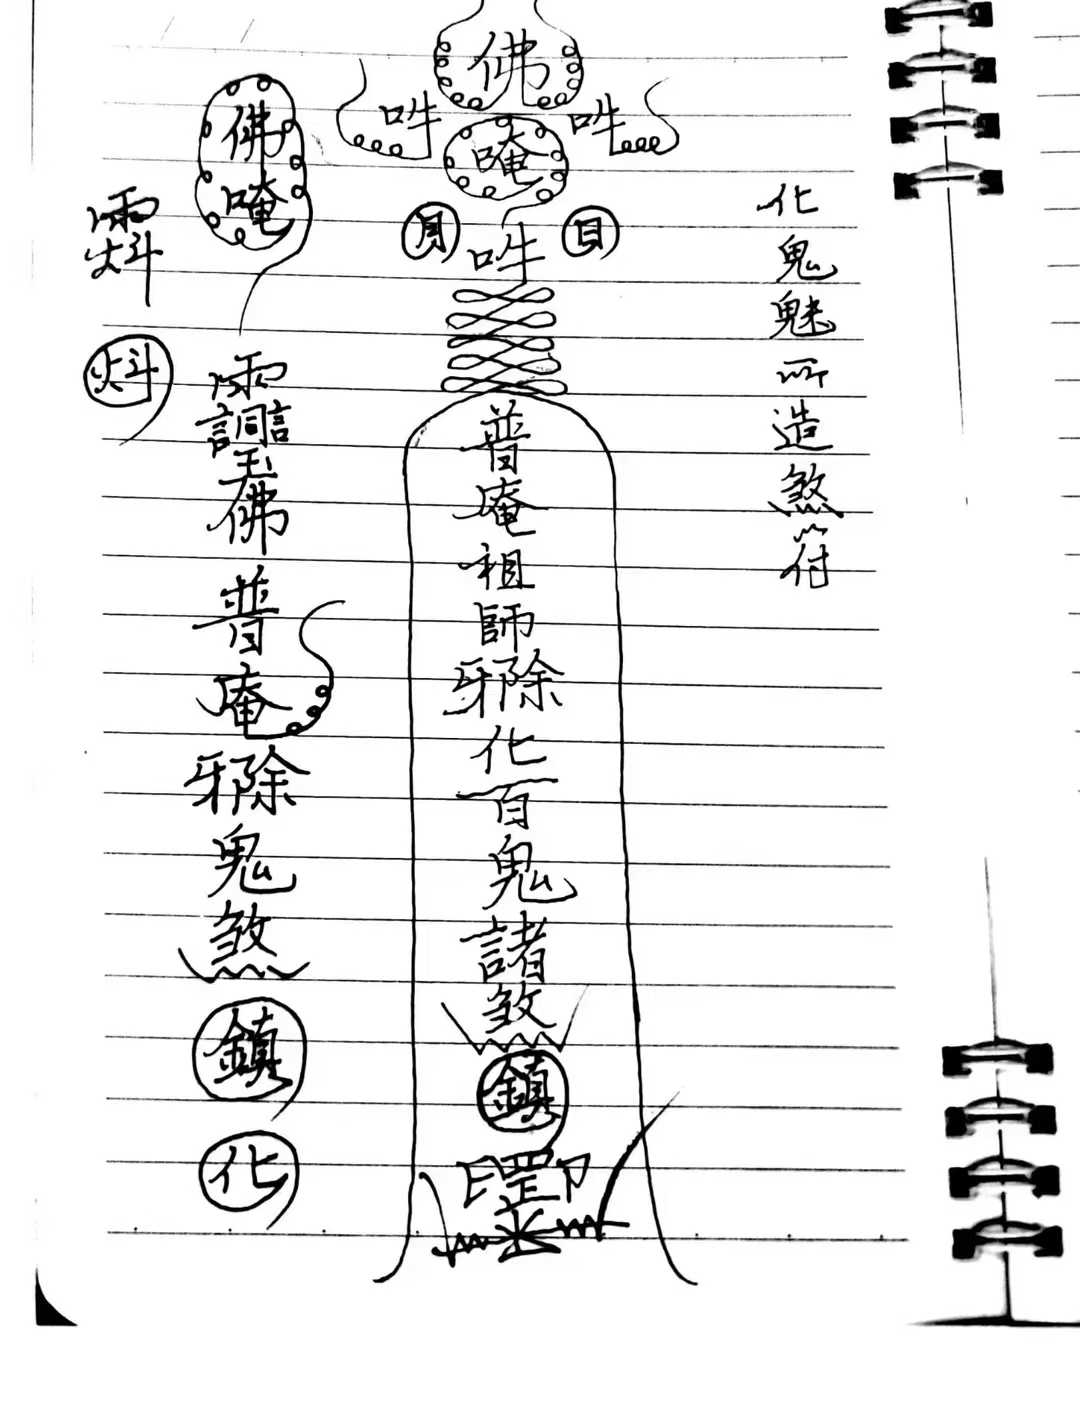 化鬼魅所造煞符
佛
吽 唵 吽
月 吽 日
普庵祖師邪除化百鬼諸煞
鎮
佛唵
普庵邪除鬼煞
鎮
化